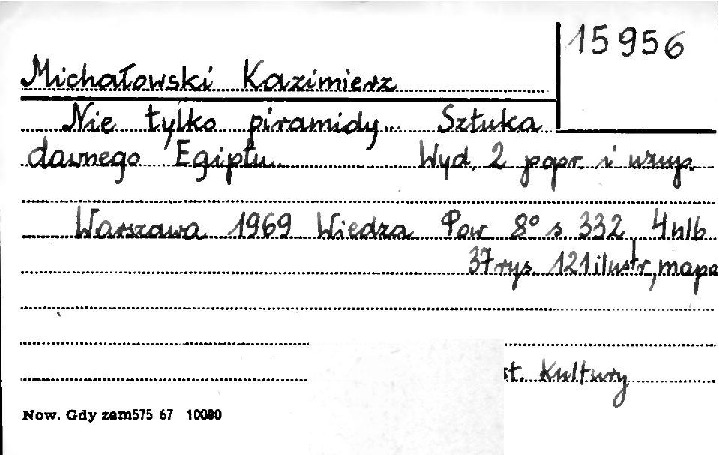 15956
Michałowski Kazimierz
Nie tylko piramidy... Sztuka
dawnego Egiptu. Wyd. 2 popr. i uzup.
Warszawa 1969 Wiedza Pow 8° s 332, 4 nlb
37 rys. 121 ilustr., mapa
st. Kultury
Now. Gdy zam 575 67 10080